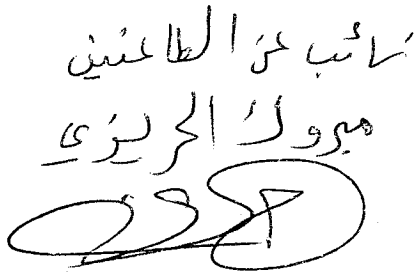 نائب عن الطاعنين
مبروك الحريزي